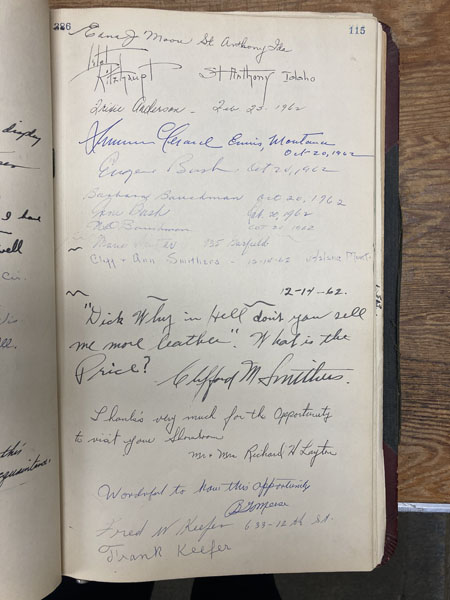 286
115
Edna J Moon St Anthony Ida
St Anthony Idaho
Irene Anderson - Feb 23, 1962
Gerard Ennis, Montana
Oct 20, 1962
Eugene Bush Oct 20, 1962
Barbara Oct 20, 1962
Jane Bush Oct. 20, 1962
Oct 20 1962
Marie 735 Garfield
Cliff + Ann Smithers - 12-14-62
12-14-62.
"Dick Why in Hell don't you sell
me more leather". What is the
Price?
Clifford M Smithers.
Thanks very much for the opportunity
to visit your Showroom
Mr + Mrs Richard H Layton
Wonderful to have this opportunity
Fred W Keefer 633-12th St.
Frank Keefer
display
I have
well
this